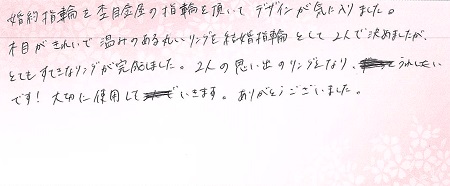 婚約指輪を杢目金屋の指輪を頂いてデザインが気に入りました。
木目がきれいで温みのある丸いリングを結婚指輪として2人で決めましたが、
とてもすてきなリングが完成しました。2人の思い出のリングとなり、うれしい
です！大切に使用していきます。ありがとうございました。